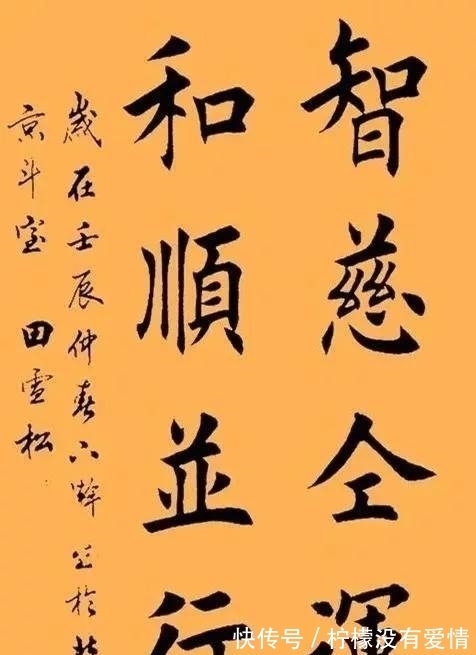 智慈仝深
和順並行
歲在壬辰仲春下澣於
京斗室 田雪松
快传号 / 柠檬没有爱情